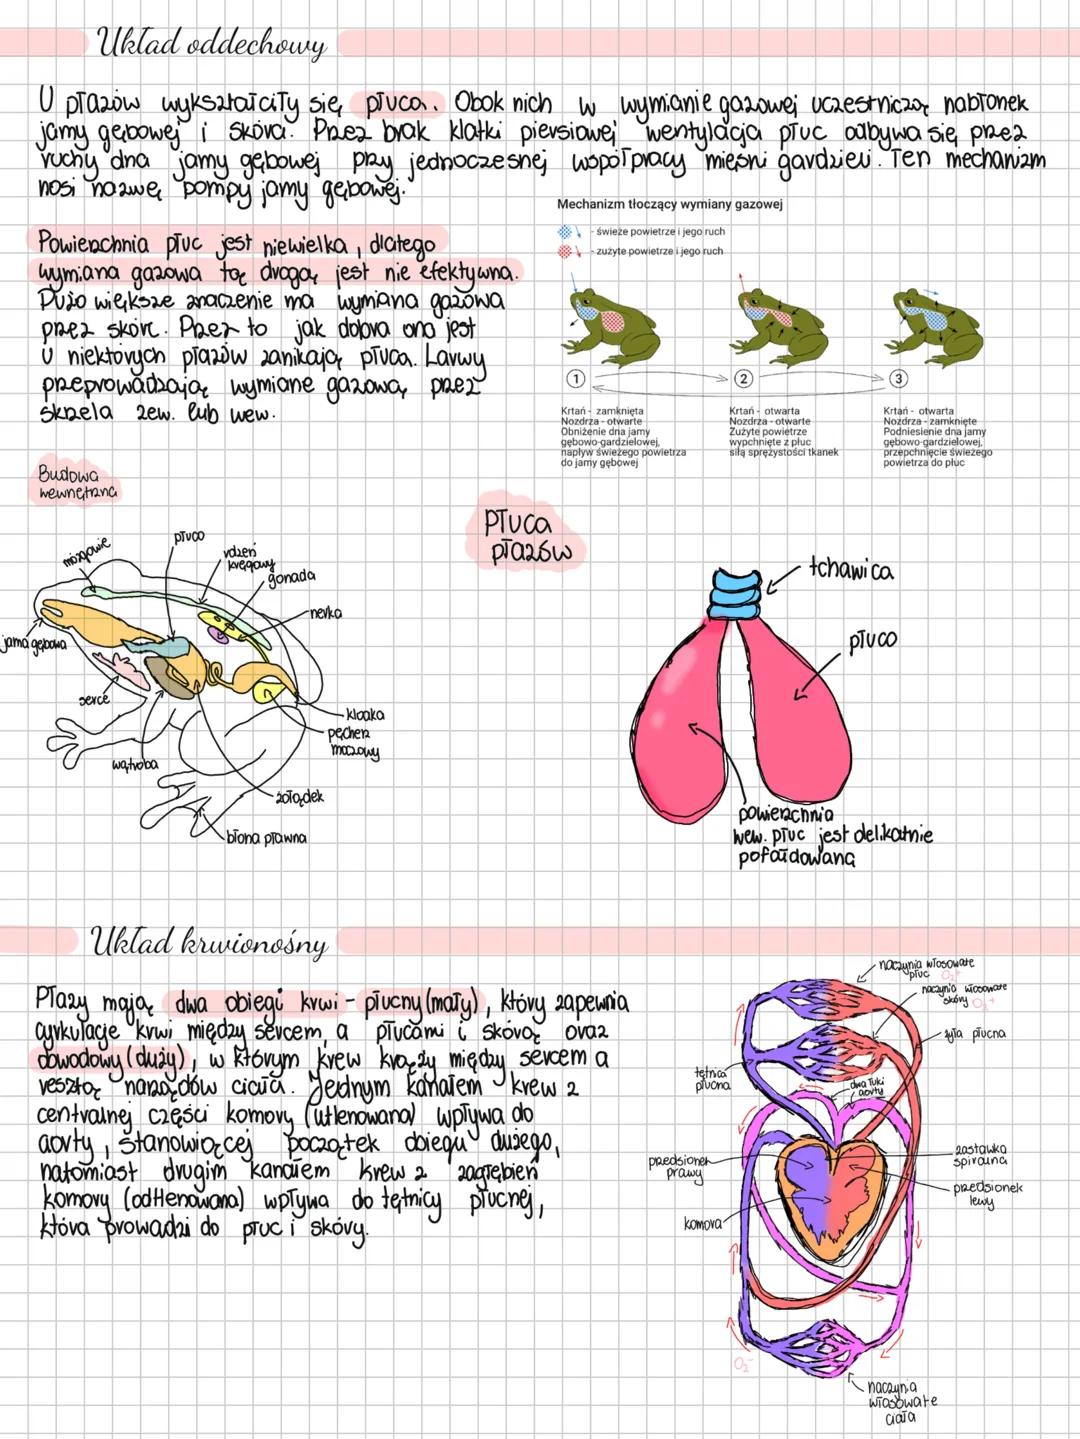 Układ oddechowy
U płazów wykształciły się płuca. Obok nich w wymianie gazowej uczestniczą nabłonek
jamy gębowej i skóra. Przez brak klatki piersiowej wentylacja płuc odbywa się przez
ruchy dna jamy gębowej przy jednoczesnej współpracy mięśni gardzieli. Ten mechanizm
nosi nazwę pompy jamy gębowej.
Mechanizm tłoczący wymiany gazowej
- świeże powietrze i jego ruch
- zużyte powietrze i jego ruch
Powierzchnia płuc jest niewielka, dlatego
wymiana gazowa tą drogą jest nie efektywna.
Dużo większe znaczenie ma wymiana gazowa
przez skórę. Przez to jak dobra ona jest
u niektórych płazów zanikają płuca. Larwy
przeprowadzają wymianę gazową przez
skrzela zew. lub wew.
1
2
3
Krtań - zamknięta
Nozdrza - otwarte
Obniżenie dna jamy
gębowo-gardzielowej,
napływ świeżego powietrza
do jamy gębowej
Krtań - otwarta
Nozdrza - otwarte
Zużyte powietrze
wypchnięte z płuc
siłą sprężystości tkanek
Krtań - otwarta
Nozdrza - zamknięte
Podniesienie dna jamy
gębowo-gardzielowej,
przepchnięcie świeżego
powietrza do płuc
Budowa
wewnętrzna
mózgowie
płuco
rdzeń
kręgowy
gonada
nerka
jama gębowa
serce
wątroba
kloaka
pęcherz
moczowy
żołądek
błona pławna
płuca
płazów
tchawica
płuco
powierzchnia
wew. płuc jest delikatnie
pofałdowana
Układ krwionośny
Płazy mają dwa obiegi krwi - płucny (mały), który zapewnia
cyrkulację krwi między sercem, a płucami i skórą oraz
obwodowy (duży), w którym krew krąży między sercem a
resztą narządów ciała. Jednym kanałem krew z
centralnej części komory (utlenowana) wpływa do
aorty, stanowiącej początek obiegu dużego,
natomiast drugim kanałem krew z zagłębień
komory (odtlenowana) wpływa do tętnicy płucnej,
która prowadzi do płuc i skóry.
naczynia włosowate
płuc O₂+
naczynia włosowate
skóry O₂+
żyła płucna
tętnica
płucna
dwa łuki
aorty
przedsionek
prawy
zastawka
spiralna
przedsionek
lewy
komora
O₂-
naczynia
włosowate
ciała